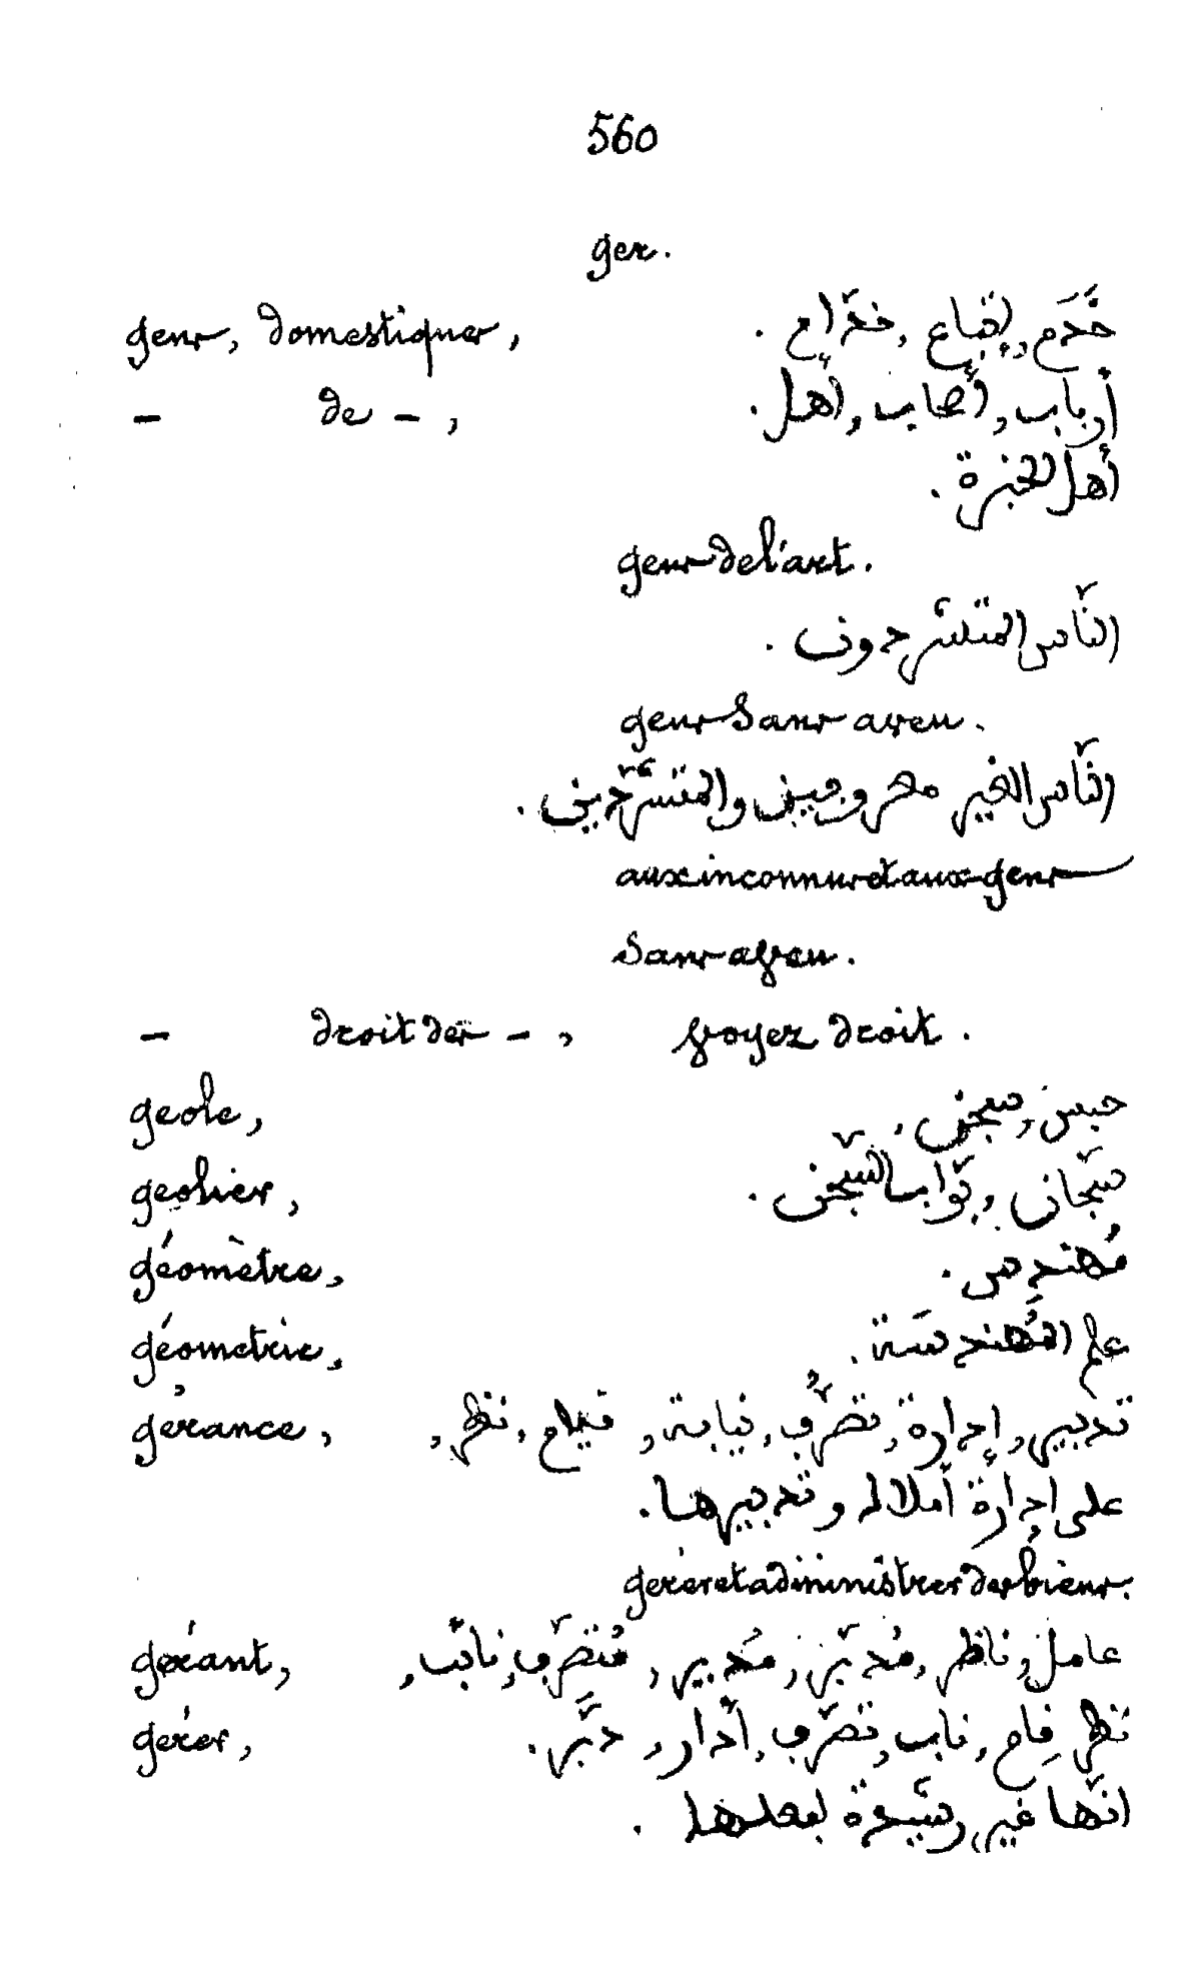 560
ger.
gens, domestiques, خَدَم, إتباع, خدّام.
– de –, أرباب, أصحاب, أهل.
أهل الخبرة.
gens de l'art.
النّاس المتشرّدون.
gens sans aveu.
النّاس الغير معروفين والمتشرّدين.
aux inconnus et aux gens
sans aveu.
– droit des –, voyez droit.
geole, حبس, سجن.
geolier, سجّان, بوّاب السّجن.
géomètre, مُهندِس.
géometrie, علم الهندسَة.
gérance, تدبير, إدارة, تصرُّف, نيابة, قيام, نظر,
على إدارة أملاك وتدبيرها.
gérer et administrer des biens.
gérant, عامل, ناظر, مُدبّر, مُدير, مُتصرّف, نائب,
gérer, نظر, قام, ناب, تصرّف, أدار, دبّر.
انّها غير رشيدة لبعلها.